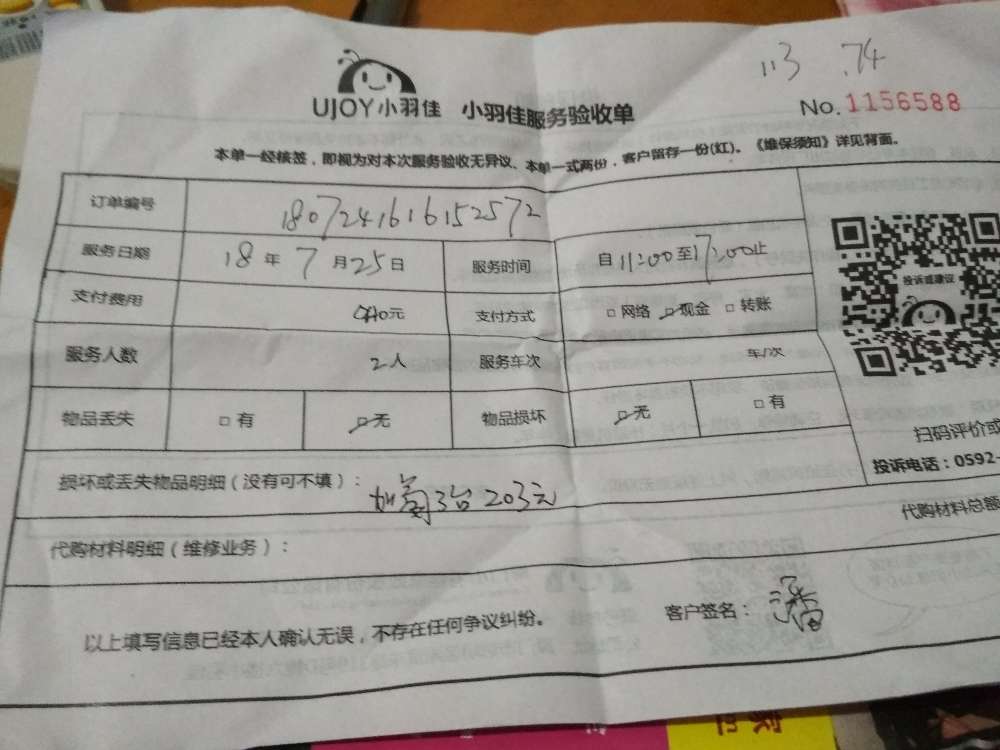 113 .74
UJOY小羽佳 小羽佳服务验收单
No.1156588
本单一经核签，即视为对本次服务验收无异议、本单一式两份，客户留存一份(红)。《维保须知》详见背面。
订单编号 1807241616152572
服务日期 18年7月25日 服务时间 自11:00至17:00止
支付费用 元 支付方式 □网络 □现金 □转账
服务人数 2人 服务车次 车/次
物品丢失 □有 □无 物品损坏 □无 □有
投诉或建议
扫码评价或
投诉电话：0592-
损坏或丢失物品明细（没有可不填）：
3台203元
代购材料明细（维修业务）：
代购材料总额
以上填写信息已经本人确认无误，不存在任何争议纠纷。
客户签名：潘